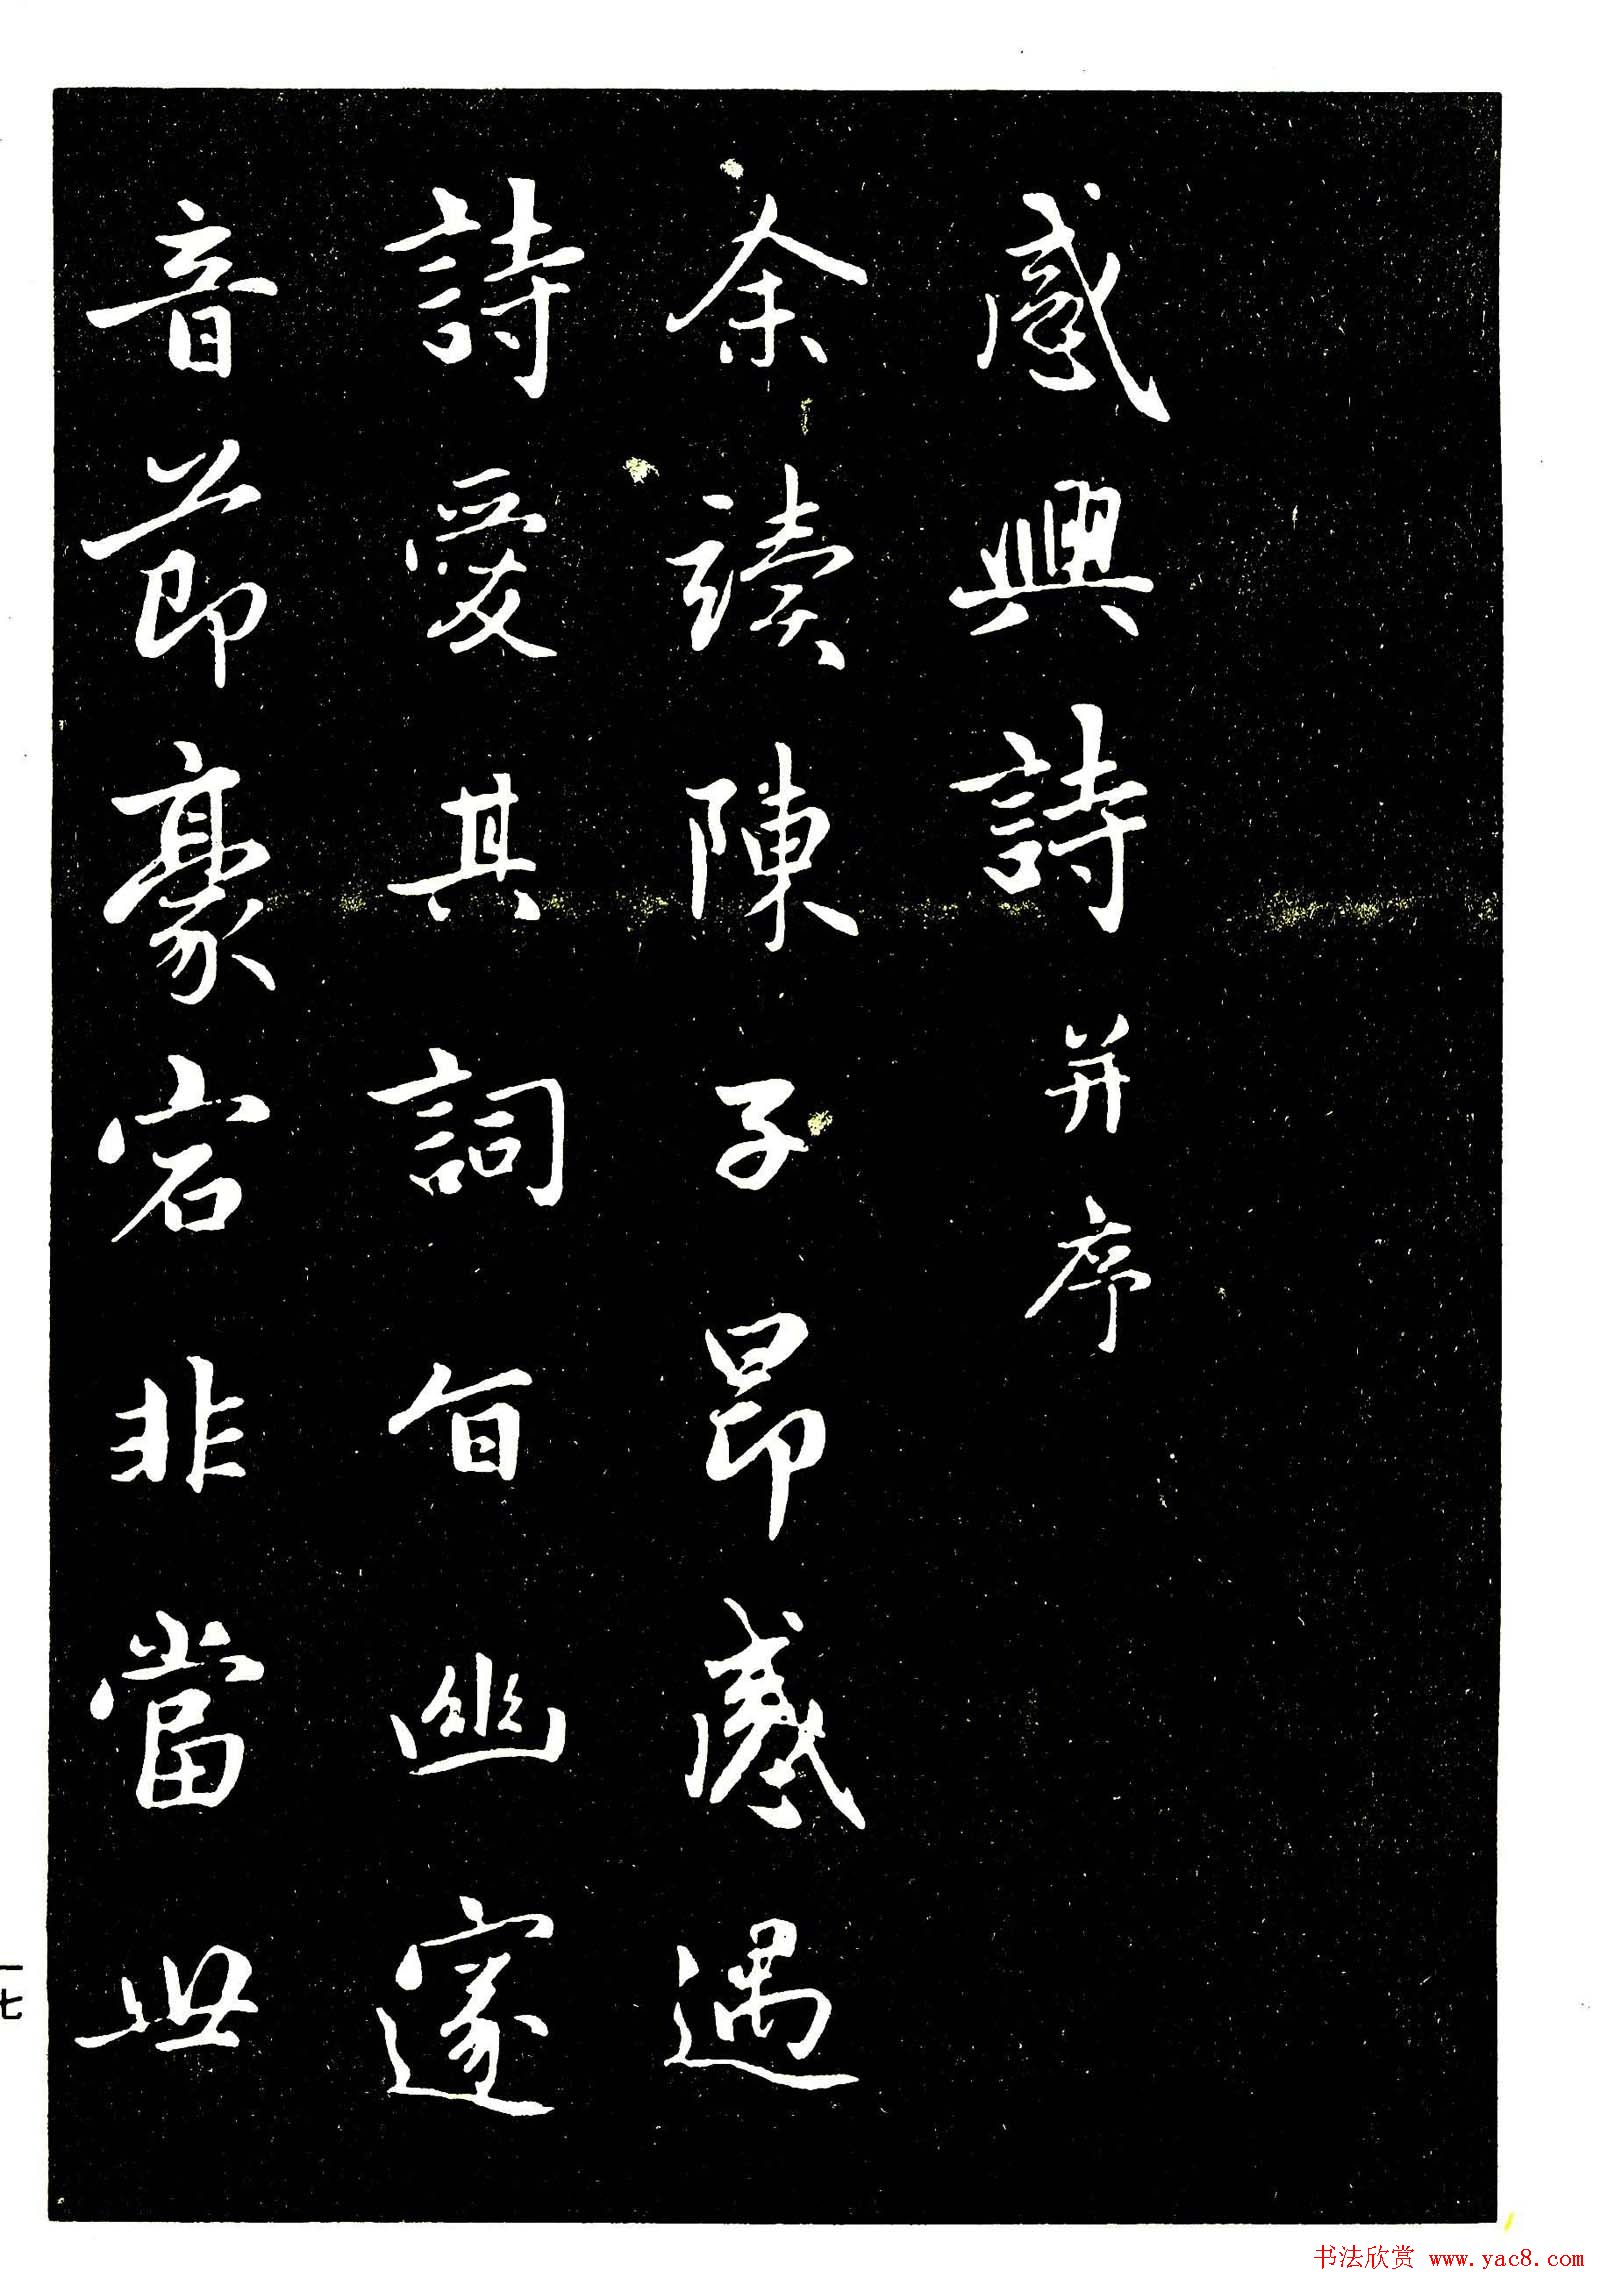 感興詩并序
余讀陳子昂感遇
詩愛其詞旨幽邃
音節豪宕非當世
一七
书法欣赏 www.yac8.com